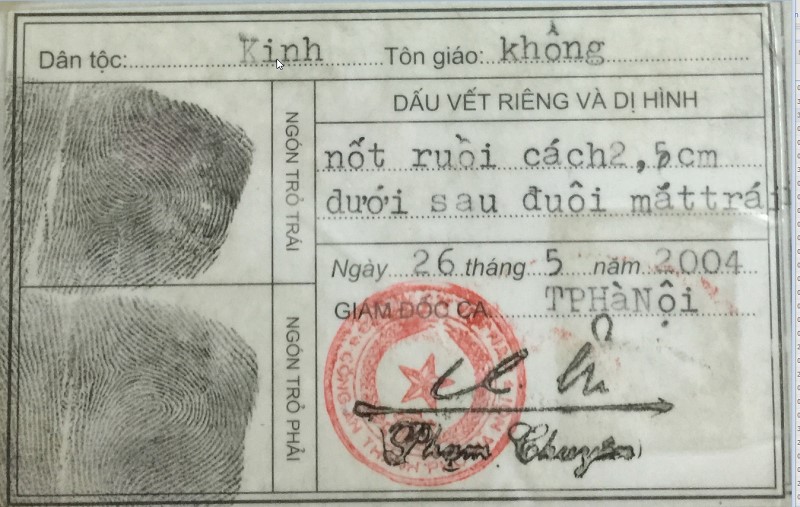 Dân tộc: Kinh Tôn giáo: không
NGÓN TRỎ TRÁI
NGÓN TRỎ PHẢI
DẤU VẾT RIÊNG VÀ DỊ HÌNH
nốt ruồi cách2,5cm
dưới sau đuôi mắttrái
Ngày 26 tháng 5 năm 2004
GIÁM ĐỐC CA TPHàNội
Phạm Chuyên